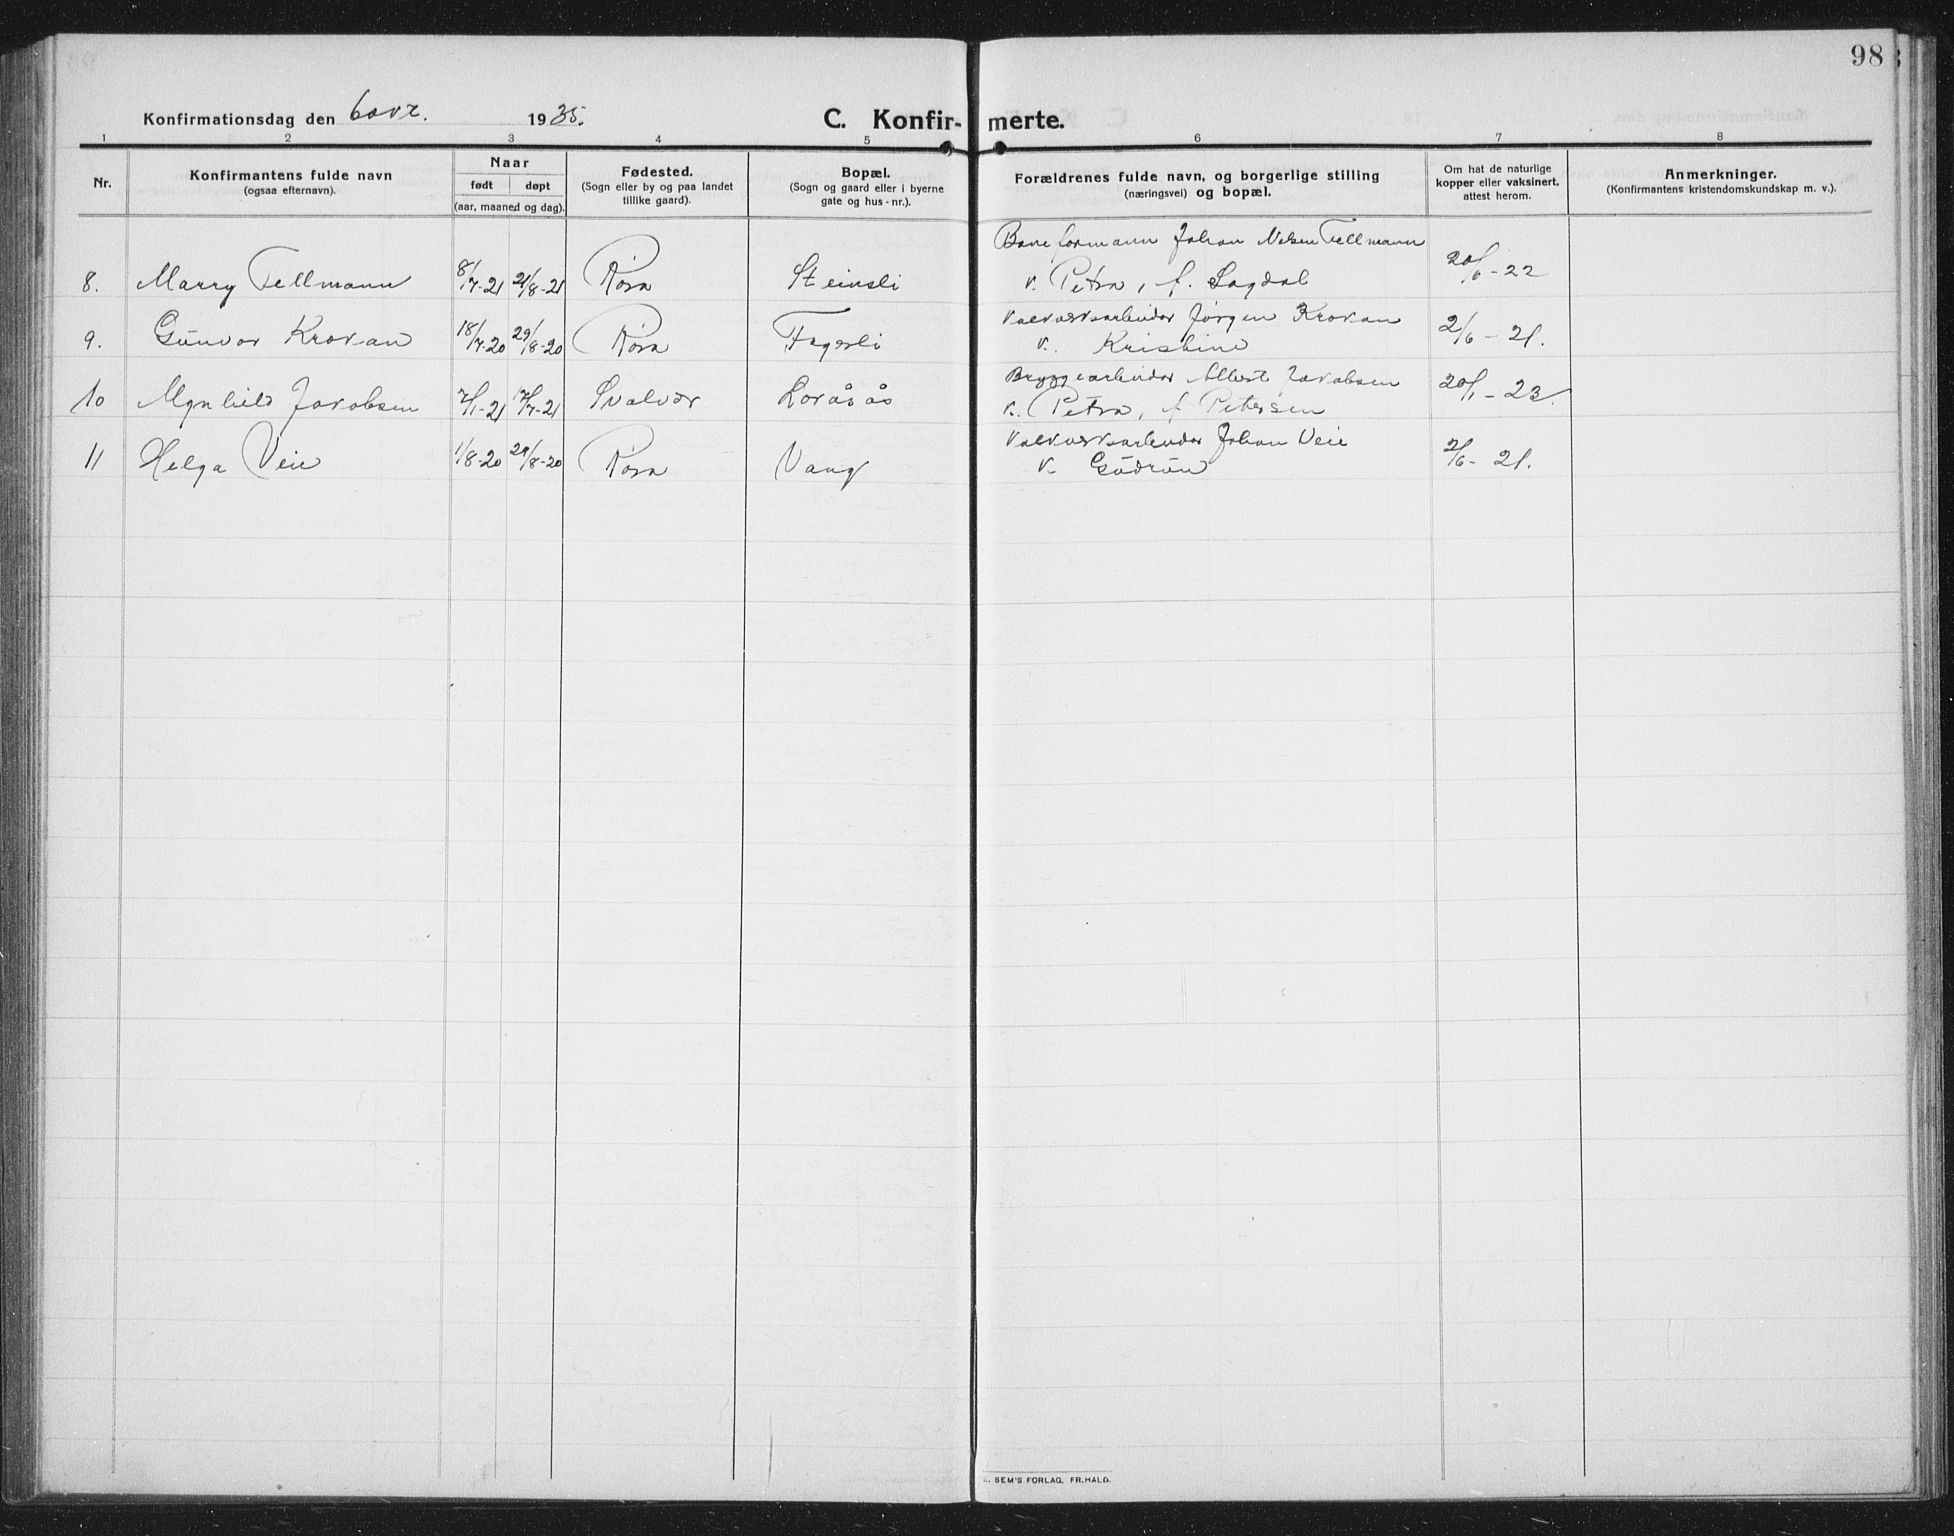 98
Konfirmationsdag den 6 1935.
C. Konfir-merte.
1 2 3 4 5 6 7 8
Nr.
Konfirmantens fulde navn
(ogsaa efternavn).
Naar
født døpt
(aar, maaned og dag).
Fødested.
(Sogn eller by og paa landet
tillike gaard).
Bopæl.
(Sogn og gaard eller i byerne
gate og hus-nr.).
Forældrenes fulde navn, og borgerlige stilling
(næringsvei) og bopæl.
Om hat de naturlige
kopper eller vaksinert,
attest herom.
Anmerkninger.
(Konfirmantens kristendomskundskap m. v.).
Baneformann Johan Nelsen Tellmann
8. Marry Tellmann 8/7-21 21/8-21 Røra Steinsli k. Petra, f. Sagdal 20/6-22
Kalkverksarbeider Jørgen Krokan
9. Gunvor Krokan 18/7-20 29/8-20 Røra Fagerli k. Kristine 2/6-21.
Bryggearbeider Albert Jakobsen
10 Jakobsen 7/1-21 17/7-21 Svalvær k. Petra, f. Petersen 20/1-23.
Kalkverksarbeider Johan Veie
11 Helga Veie 1/8-20 29/8-20 Røra Vang k. Gudrun 2/6-21.
SEM'S FORLAG, FR.HALD.